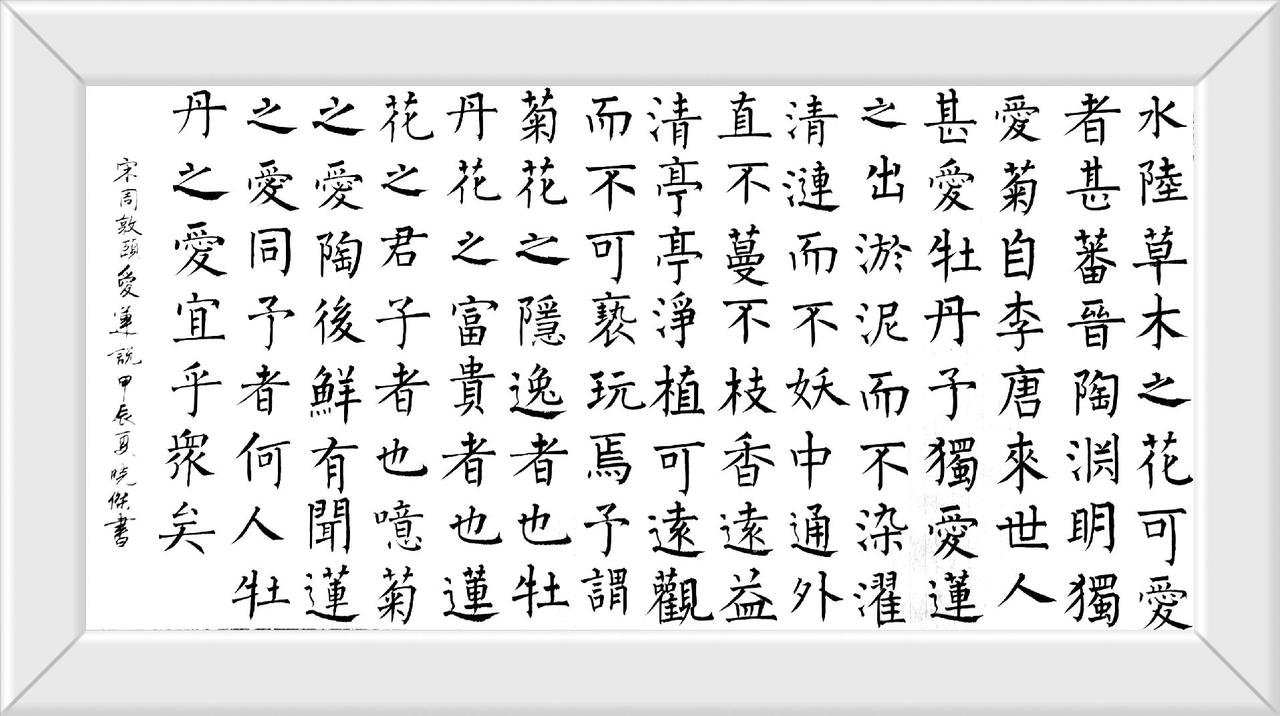 水陸草木之花可愛
者甚蕃晉陶渕明獨
愛菊自李唐來世人
甚愛牡丹予獨愛蓮
之出淤泥而不染濯
清漣而不妖中通外
直不蔓不枝香遠益
清亭亭淨植可遠觀
而不可褻玩焉予謂
菊花之隱逸者也牡
丹花之富貴者也蓮
花之君子者也噫菊
之愛陶後鮮有聞蓮
之愛同予者何人牡
丹之愛宜乎衆矣
宋周敦頤愛蓮說甲辰夏曉傑書